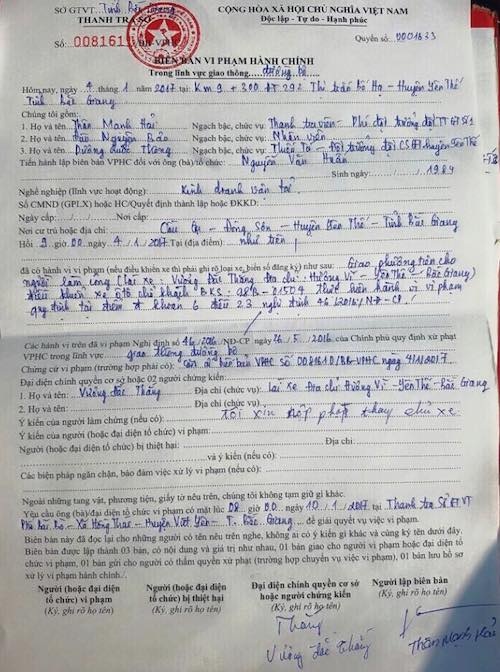 SỞ GTVT. Tỉnh Bắc Giang
THANH TRA SỞ
CỘNG HÒA XÃ HỘI CHỦ NGHĨA VIỆT NAM
Độc lập - Tự do - Hạnh phúc
Số: 0081619 /BB-VPHC
Quyển số: 0001633
BIÊN BẢN VI PHẠM HÀNH CHÍNH
Trong lĩnh vực giao thông đường bộ
Hôm nay, ngày 4 tháng 1 năm 2017 tại Km 9 + 200 ĐT 292 Thị trấn Bố Hạ - Huyện Yên Thế
Tỉnh Bắc Giang
Chúng tôi gồm:
1. Họ và tên: Thân Mạnh Hải Ngạch bậc, chức vụ: Thanh tra viên - Phó đội trưởng đội TT GT Số 1
2. Họ và tên: Nguyễn Bảo Ngạch bậc, chức vụ: Nhân viên
3. Họ và tên: Dương Quốc Thông Ngạch bậc, chức vụ: Thiếu Tá - Đội trưởng đội CSGT huyện Yên Thế
Tiến hành lập biên bản VPHC đối với ông (bà)/tổ chức: Nguyễn Văn Huân
Sinh ngày: 1984
Nghề nghiệp (lĩnh vực hoạt động): Kinh doanh vận tải
Số CMND (GPLX) hoặc HC/Quyết định thành lập hoặc ĐKKD:
Ngày cấp: Nơi cấp:
Nơi cư trú hoặc địa chỉ: Cầu Gụ - Đông Sơn - Huyện Yên Thế - Tỉnh Bắc Giang
Hồi 9 giờ 00 ngày 4/1/2017 Tại (địa điểm): như trên
đã có hành vi vi phạm (nếu điều khiển xe thì phải ghi rõ loại xe, biển số đăng ký) như sau: Giao phương tiện cho
người làm công (Lái xe: Vương Đắc Thắng địa chỉ: Hương Vĩ - Yên Thế - Bắc Giang)
điều khiển xe ôtô chở khách BKS: 98B-01504 thực hiện hành vi vi phạm
quy định tại điểm khoản 6 điều 23 nghị định 46/2016/NĐ-CP!
Các hành vi trên đã vi phạm Nghị định số 46/2016/NĐ-CP ngày 26/5/2016 của Chính phủ quy định xử phạt
VPHC trong lĩnh vực giao thông đường bộ
Chứng cứ vi phạm (trường hợp phải có): biên bản VPHC số 0081610/BB-VPHC ngày 4/1/2017
Đại diện chính quyền cơ sở hoặc 02 người chứng kiến:
1. Họ và tên: Vương Đắc Thắng Địa chỉ (chức vụ): Lái xe Địa chỉ Hương Vĩ - Yên Thế - Bắc Giang
2. Họ và tên: Địa chỉ (chức vụ):
Ý kiến của người làm chứng (nếu có): Tôi xin nộp phạt thay chủ xe
Ý kiến của người (hoặc đại diện tổ chức) vi phạm:
Người (hoặc đại diện tổ chức) bị thiệt hại: Địa chỉ:
và ý kiến (nếu có):
Các biện pháp ngăn chặn, bảo đảm việc xử lý vi phạm (nếu có):
Ngoài những tang vật, phương tiện, giấy tờ nêu trên, chúng tôi không tạm giữ gì khác.
Yêu cầu ông (bà)/đại diện tổ chức vi phạm có mặt lúc 08 giờ 00 ngày 10/1/2017 tại Thanh tra Sở GTVT
Xã Hồng Thái - Huyện Việt Yên - T. Bắc Giang để giải quyết vụ việc vi phạm.
Biên bản này đã đọc lại cho những người có tên nêu trên nghe, không ai có ý kiến gì khác và cùng ký tên dưới đây.
Biên bản được lập thành 03 bản, có nội dung và giá trị như nhau, 01 bản giao cho người vi phạm hoặc đại diện tổ
chức vi phạm, 01 bản gửi cho người có thẩm quyền xử phạt (trường hợp chuyển vụ việc vi phạm), 01 bản lưu hồ sơ
xử lý vi phạm hành chính./.
Người (hoặc đại diện tổ chức) vi phạm
(Ký, ghi rõ họ tên)
Người (hoặc đại diện tổ chức) bị thiệt hại
(Ký, ghi rõ họ tên)
Đại diện chính quyền cơ sở hoặc người chứng kiến
(Ký, ghi rõ họ tên)
Thắng
Vương Đắc Thắng
Người lập biên bản
(Ký, ghi rõ họ tên)
Thân Mạnh Hải